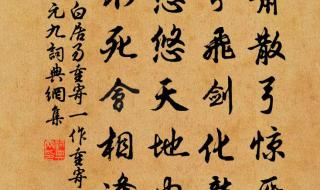 散弓惊雁
飛劍化龍
悠悠天地内
不死會相逢
白居易重寄一作重寄
元九詞典網集